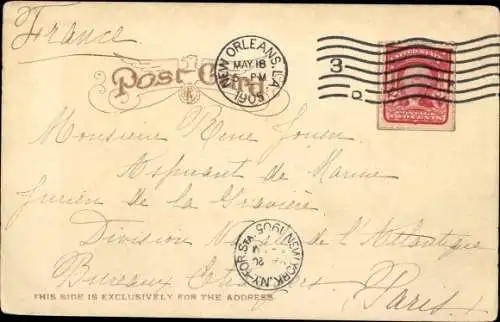 France
Post Card
NEW ORLEANS, LA.
MAY 18
5 - PM
1905
3
D
UNITED STATES
POSTAGE
TWO CENTS
Monsieur René
Aspirant de Marine
Jurien de la Gravière
NEW YORK, N.Y. FOR. STA.
1905
Division de l'Atlantique
Bureaux
Paris
THIS SIDE IS EXCLUSIVELY FOR THE ADDRESS.